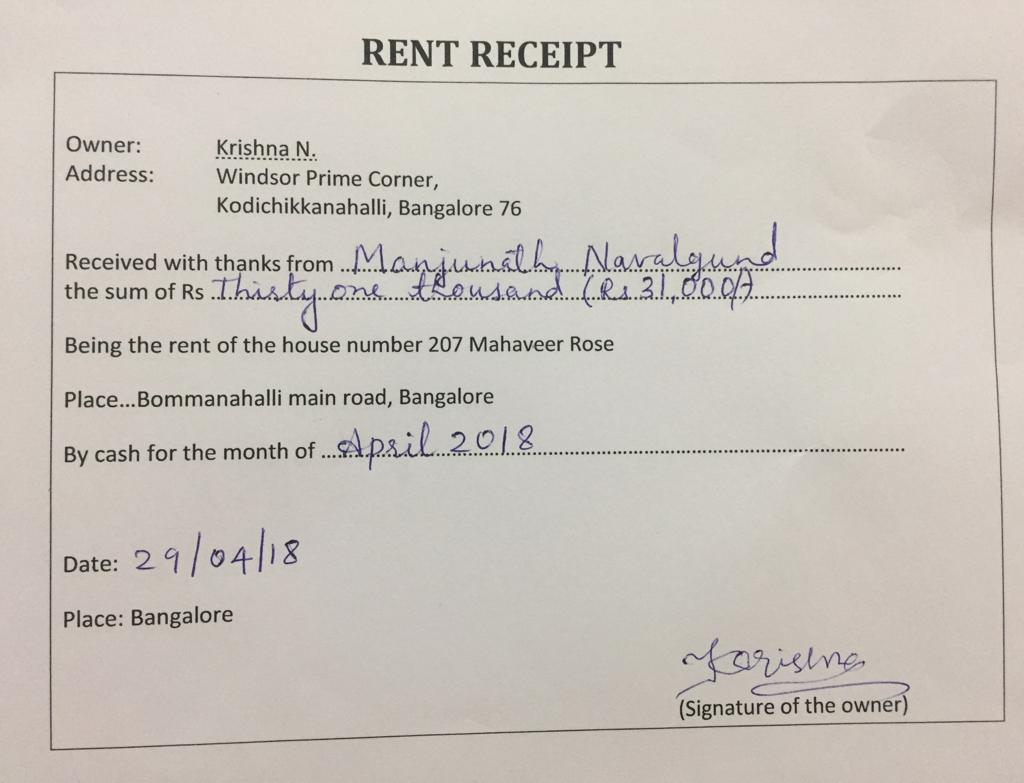 RENT RECEIPT
Owner: Krishna N.
Address: Windsor Prime Corner,
Kodichikkanahalli, Bangalore 76
Received with thanks from ..Manjunath Navalgund..........
the sum of Rs .Thirty one thousand (Rs 31,000/)..........
Being the rent of the house number 207 Mahaveer Rose
Place...Bommanahalli main road, Bangalore
By cash for the month of ...April 2018..........
Date: 29/04/18
Place: Bangalore
Krishna
(Signature of the owner)